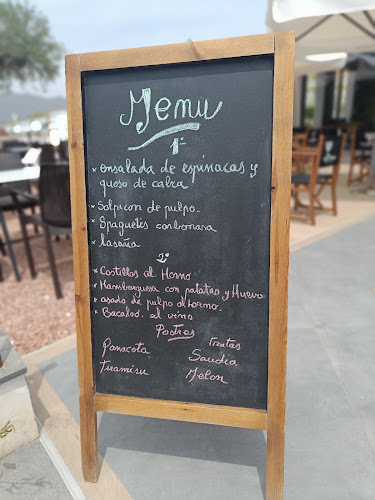 Menu
1º
* ensalada de espinacas y
queso de cabra
* Salpicon de pulpo.
* Spaguetis carbonara
* lasaña
2º
* Costillas al Horno
* Hamburguesa con patatas y Huevo
* asado de pulpo al horno.
* Bacalao al vino
Postres
Panacota
Tiramisu
Frutas
Saudia
Melon